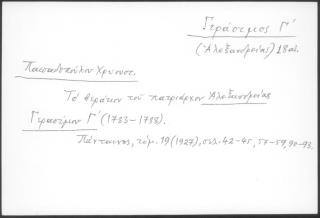 Γεράσιμος Γ´
(Ἀλεξανδρείας) 18 αἰ.
Παπαδοπούλου Χρυσοστ.
Τὸ βεράτιον τοῦ πατριάρχου Ἀλεξανδρείας
Γερασίμου Γ´ (1783-1788).
Πάνταινος, τόμ. 19 (1927), σελ. 42-45, 57-59, 90-93.